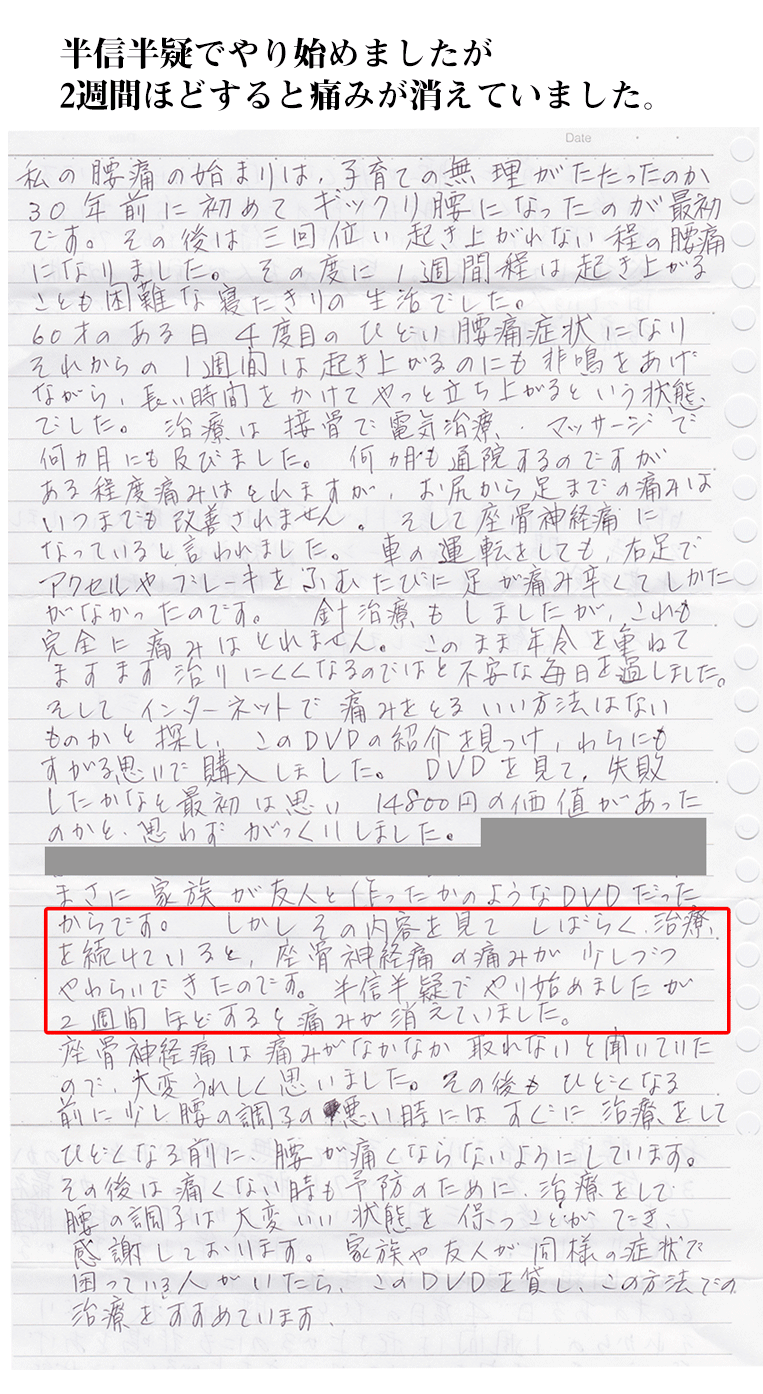 半信半疑でやり始めましたが
2週間ほどすると痛みが消えていました。
Date
私の腰痛の始まりは、子育ての無理がたたったのか
30年前に初めてギックリ腰になったのが最初
です。その後は三回位い起き上がれない程の腰痛
になりました。その度に1週間程は起き上がる
ことも困難な寝たきりの生活でした。
60才のある日4度目のひどい腰痛症状になり
それからの1週間は起き上がるのにも悲鳴をあげ
ながら、長い時間をかけてやっと立ち上がるという状態
でした。治療は接骨で電気治療・マッサージで
何ヵ月にも及びました。何ヵ月も通院するのですが
ある程度痛みはとれますが、お尻から足までの痛みは
いつまでも改善されません。そして座骨神経痛に
なっていると言われました。車の運転をしても、右足で
アクセルやブレーキをふむたびに足が痛み辛くてしかた
がなかったのです。針治療もしましたが、これも
完全に痛みはとれません。このまま年令を重ねて
ますます治りにくくなるのではと不安な毎日を過しました。
そしてインターネットで痛みをとるいい方法はない
ものかと探し、このDVDの紹介を見つけ、わらにも
すがる思いで購入しました。DVDを見て、失敗
したかなと最初は思い14800円の価値があった
のかと、思わずがっくりしました。
まさに家族が友人と作ったかのようなDVDだった
からです。しかしその内容を見てしばらく、治療
を続けていると、座骨神経痛の痛みが少しづつ
やわらいできたのです。半信半疑でやり始めましたが
2週間ほどすると痛みが消えていました。
座骨神経痛は痛みがなかなか取れないと聞いていた
ので、大変うれしく思いました。その後もひどくなる
前に少し腰の調子の悪い時にはすぐに治療をして
ひどくなる前に、腰が痛くならないようにしています。
その後は痛くない時も予防のために、治療をして
腰の調子は大変いい状態を保つことができ、
感謝しております。家族や友人が同様の症状で
困っている人がいたら、このDVDを貸し、この方法での
治療をすすめています。